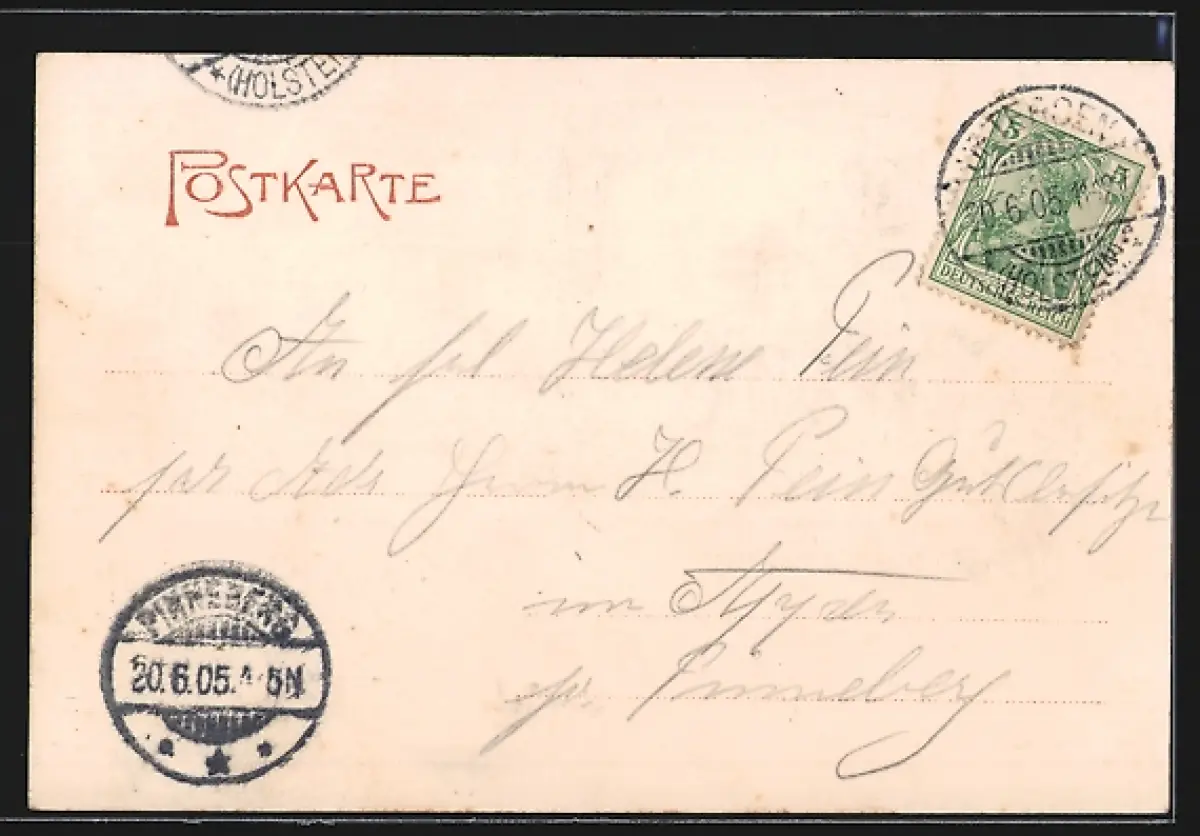 * (HOLSTEIN
POSTKARTE
5 5
20.6.05.11
* (HOLSTEIN) *
DEUTSCHES REICH
An frl Helene Fein
pr Adr Herrn H. Fein Gutsbesitzer
in
pr. Pinneberg
PINNEBERG
20.6.05. 4-5N